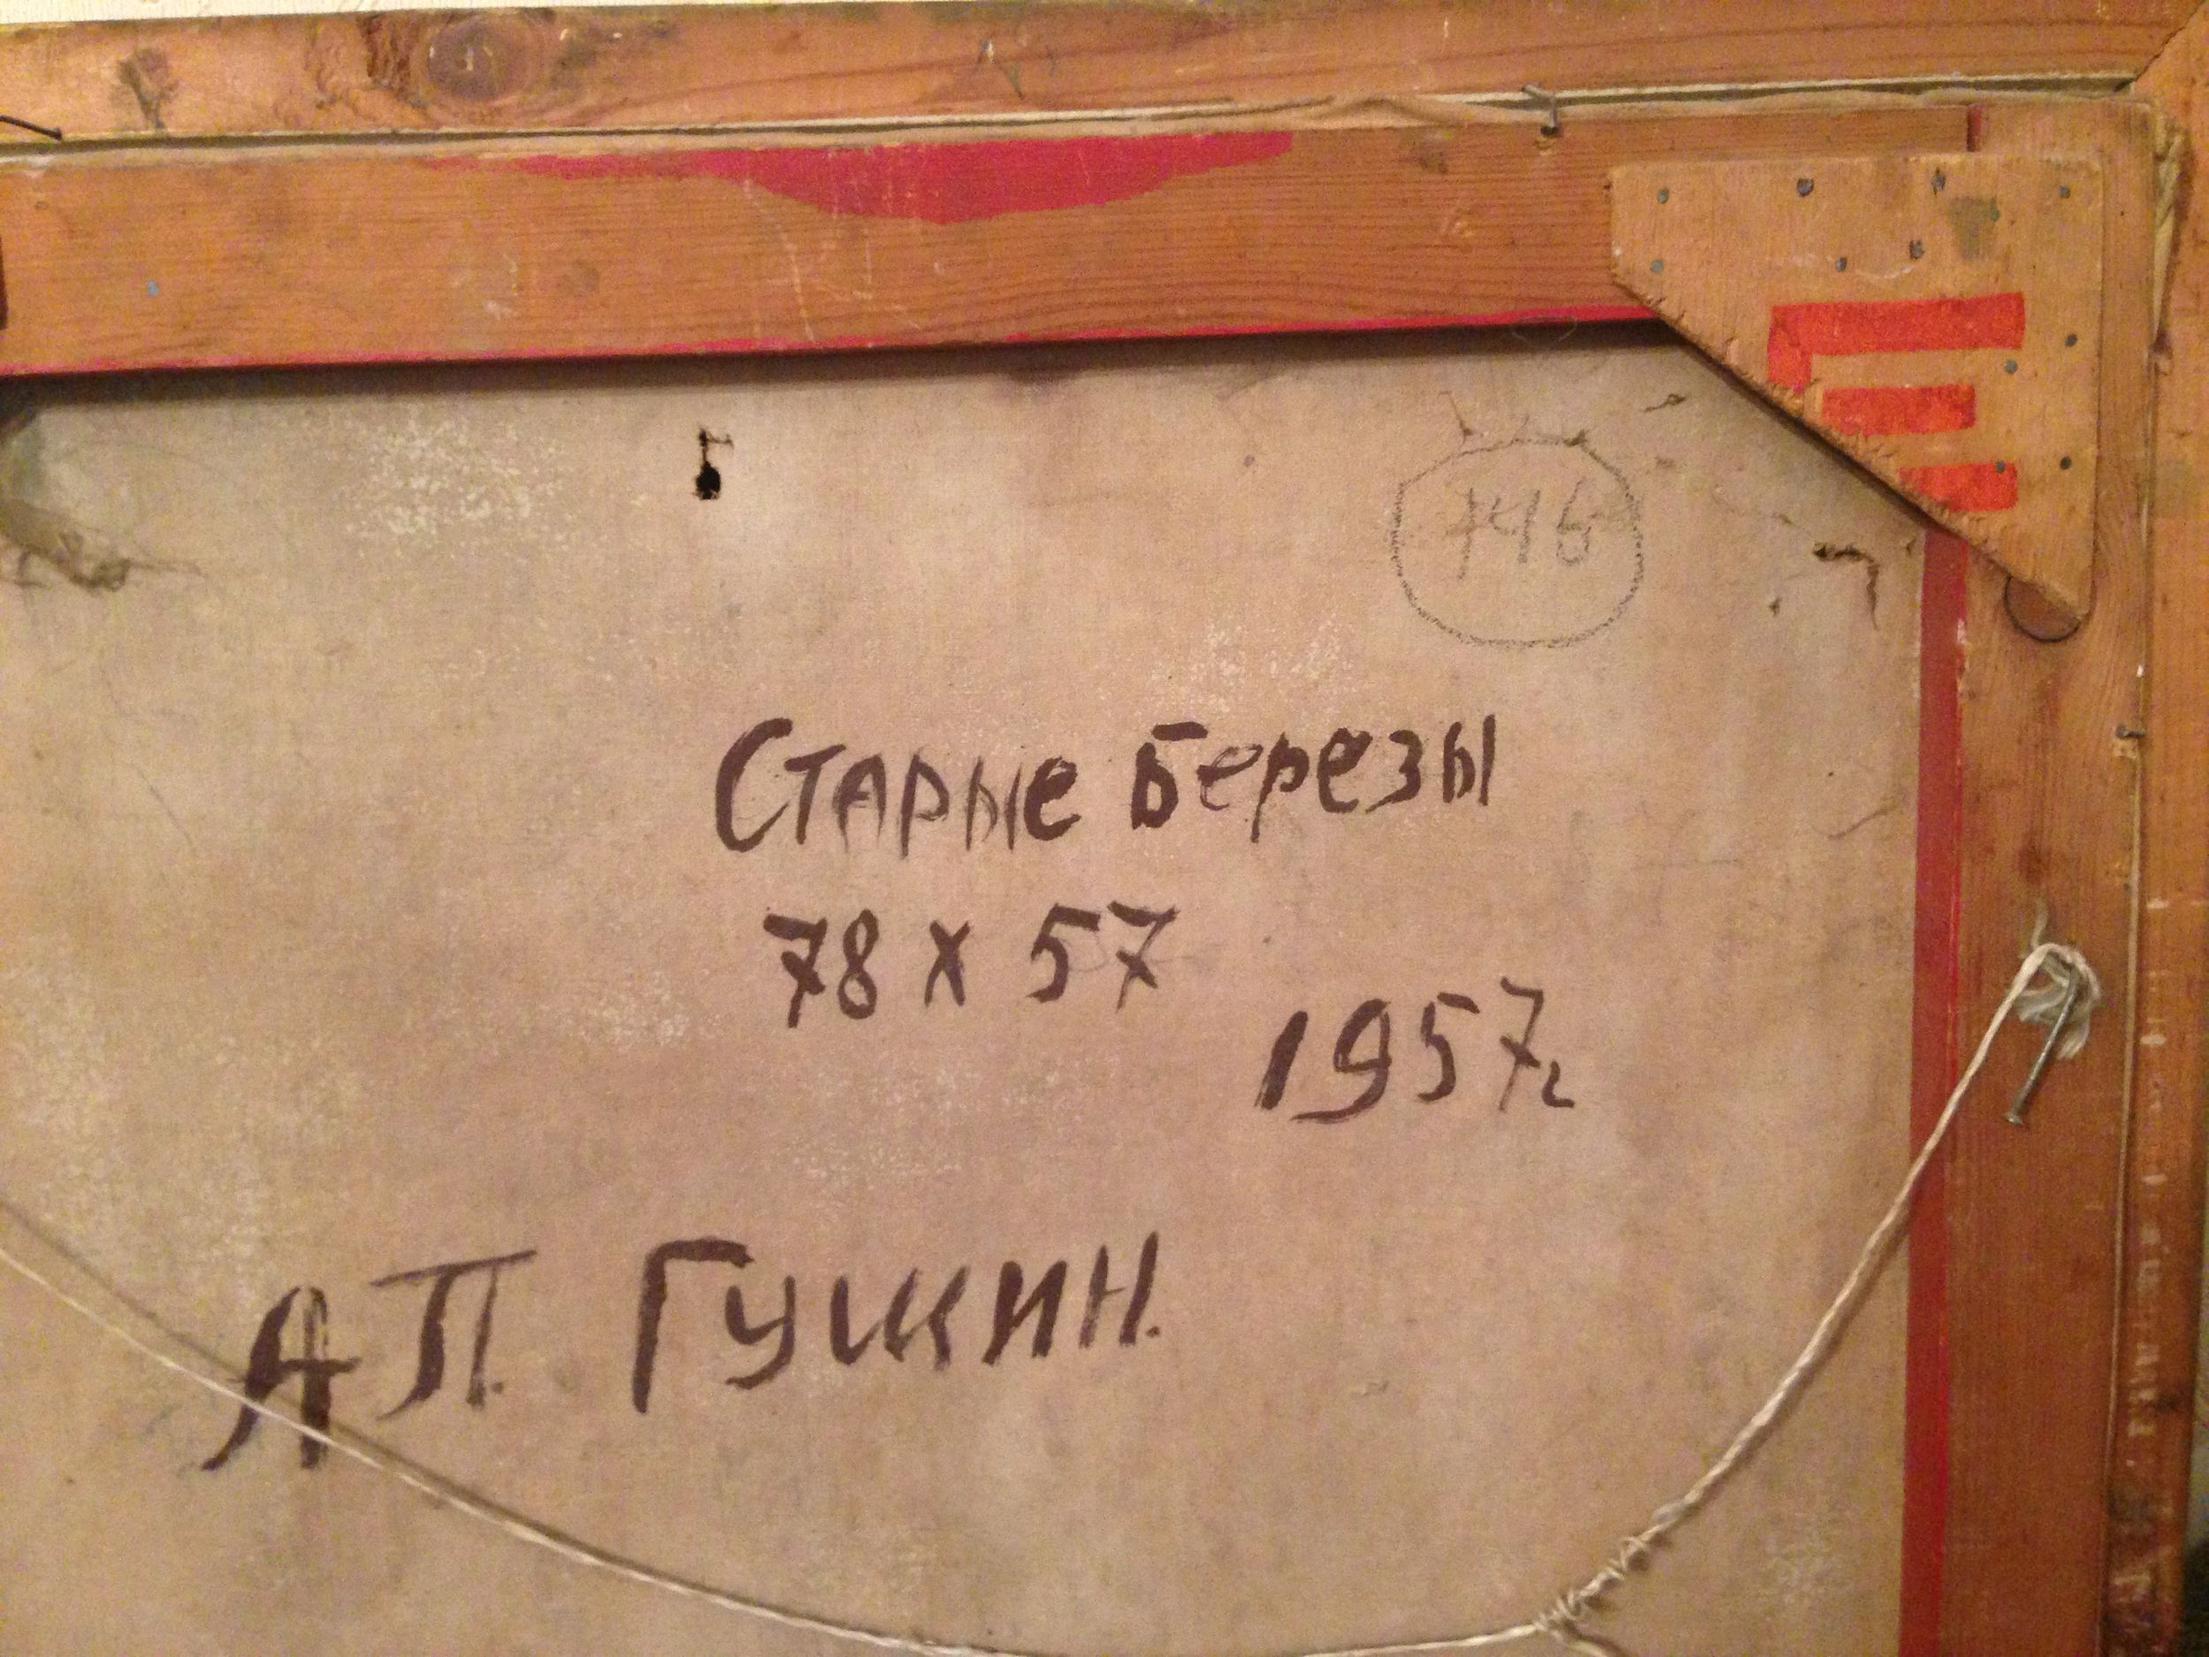 Старые Березы
78 x 57
1957г
А П. Гущин.